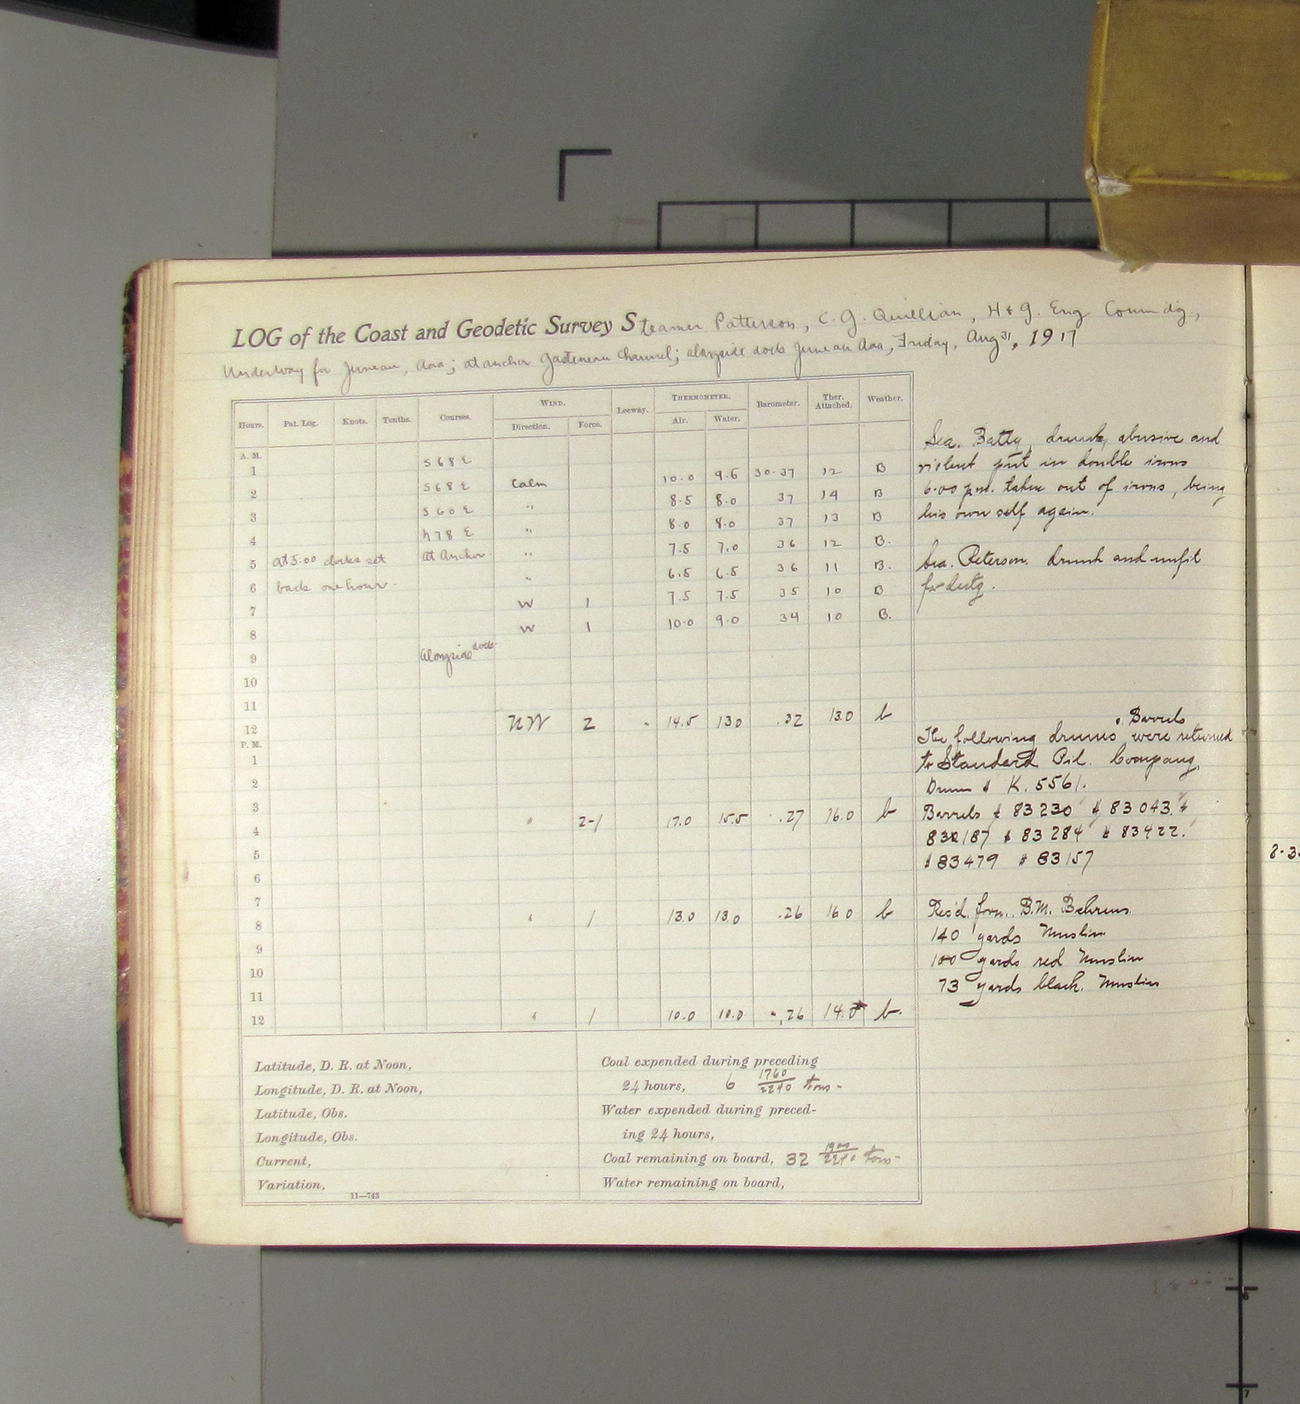 LOG of the Coast and Geodetic Survey Steamer Patterson, C. G. Quillian, H & G. Eng Comm'dg,
Underway for Juneau, Aaa; at anchor Gastineau Channel; alongside dock Juneau Aaa, Friday, Aug 31, 1917
Hours. Pat. Log. Knots. Tenths. Courses. WIND. Leeway. THERMOMETER. Barometer. Ther. Attached. Weather.
Direction. Force. Air. Water.
A. M.
1 S 68 E 10.0 9.5 30.37 12 B
2 S 68 E Calm 8.5 8.0 37 14 B
3 S 60 E " 8.0 8.0 37 13 B
4 N 78 E " 7.5 7.0 36 12 B.
5 at 5:00 clocks set at anchor " 6.5 6.5 36 11 B.
6 back one hour. " 7.5 7.5 35 10 B
7 W 1 10.0 9.0 34 10 B.
8 W 1
9 alongside dock
10
11
12 NW 2 14.5 130 .32 13.0 b
P. M.
1
2
3
4 " 2-1 17.0 15.5 .27 16.0 b
5
6
7
8 " 1 13.0 13.0 .26 16.0 b
9
10
11
12 " 1 10.0 10.0 .26 14. b.
Sea. Batty, drunk, abusive and
violent put in double irons
6:00 pm. taken out of irons, being
his own self again.
Sea. Peterson. drunk and unfit
for duty.
Barrels
The following drums were returned
to Standard Oil. Company,
Drum # K. 5561.
Barrels # 83230 # 83043. #
830187 # 83284 # 83422.
# 83479 # 83157
Rec'd. from. B.M. Behrens
140 yards Muslin
100 yards red Muslin
73 yards black. Muslin
Latitude, D. R. at Noon,
Longitude, D. R. at Noon,
Latitude, Obs.
Longitude, Obs.
Current,
Variation,
11—743
Coal expended during preceding
24 hours, 6 1760/2240 tons-
Water expended during preced-
ing 24 hours,
Coal remaining on board, 32 /2240 tons-
Water remaining on board,
6
7